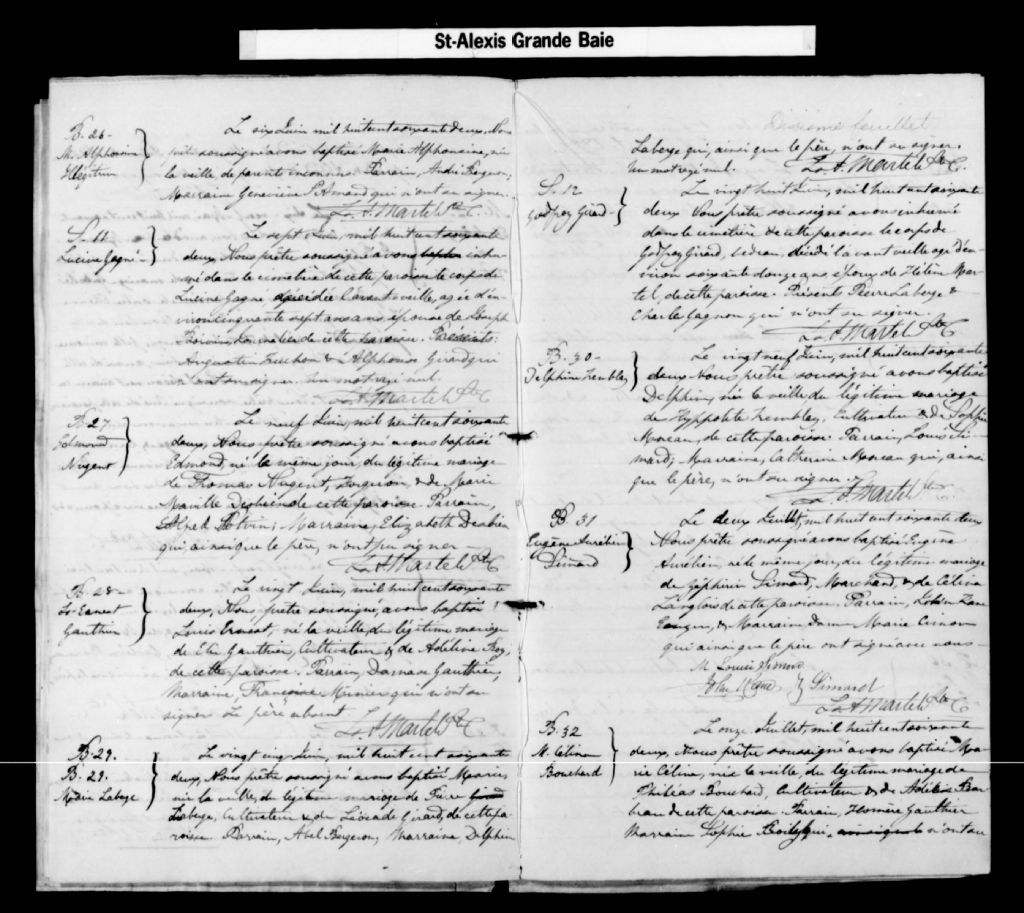 St-Alexis Grande Baie
B. 26-
M. Alphonsine
Illégitime
Le six Juin mil huit cent soixante deux, Nous
prêtre soussigné avons baptisé Marie Alphonsine, née
la veille de parents inconnus. Parrain, André Bergeron,
Marraine Geneviève St Amand qui n'ont su signer.
Ls A Martel Ptre C.
S. 11
Lucine Gagné
Le sept Juin, mil huit cent soixante
deux, Nous prêtre soussigné avons inhu-
mé dans le cimetière de cette paroisse le corps de
Lucine Gagné décédée l'avant veille, agée d'en-
viron cinquante sept ans épouse de Joseph
de cette paroisse. Présents:
Augustin & Alphonse Girard qui
n'ont su signer. Un mot rayé nul.
Ls A Martel Ptre C
B. 27.
Edmond
Nugent
Le neuf Juin, mil huit cent soixante
deux, Nous prêtre soussigné avons baptisé
Edmond, né le même jour, du légitime mariage
de Thomas Nugent, forgeron, & de Marie
de cette paroisse. Parrain,
Alfred Potvin; Marraine, Elizabeth Desbien
qui ainsi que le père, n'ont pu signer
Ls A Martel Ptre C
B. 28-
Ls Earnest
Gauthier
Le vingt Juin, mil huit cent soixante
deux, Nous prêtre soussigné, avons baptisé
Louis Ernest, né la veille, du légitime mariage
de Elie Gauthier, Cultivateur & de Adéline Roy,
de cette paroisse. Parrain, Damase Gauthier,
Marraine, Françoise qui n'ont su
signer. Le père absent.
Ls A Martel Ptre C
B. 29.
B. 29.
Marie Laberge
Le vingt cinq Juin, mil huit cent soixante
deux, Nous prêtre soussigné avons baptisé Marie,
née la veille, du légitime mariage de Pierre
Laberge, Cultivateur & de Léocade Girard, de cette pa-
roisse. Parrain, Abel Bergeron, Marraine, Delphine
Dixième feuillet
Laberge qui, ainsi que le père, n'ont su signer.
Un mot rayé nul.
Ls A Martel Ptre C.
S. 12
Godfroy Girard
Le vingt huit Juin, mil huit cent soixante
deux Nous prêtre soussigné avons inhumé
dans le cimetière de cette paroisse le corps de
Godfroy Girard, bedeau, décédé l'avant veille agé d'en-
viron soixante douze ans époux de Hélène Mar-
tel, de cette paroisse. Présent Pierre Laberge &
Charle Gagnon qui n'ont su signer.
Ls A Martel Ptre C
B. 30-
Delphine Tremblay
Le vingt neuf Juin, mil huit cent soixante
deux Nous prêtre soussigné avons baptisé
Delphine, née la veille du légitime mariage
de Hyppolite Tremblay, Cultivateur & de Sophie
Moreau, de cette paroisse. Parrain, Louis Si-
mard; Marraine, Catherine Moreau qui, ainsi
que le père, n'ont su signer.
Ls A Martel Ptre C.
B. 31
Eugène Aurélien
Simard
Le deux Juillet, mil huit cent soixante deux
Nous prêtre soussigné avons baptisé Eugène
Aurélien, né le même jour, du légitime mariage
de Zéphirin Simard, Marchand, & de Célina
Langlois de cette paroisse. Parrain, John Kane
& Marraine dame Marie
qui ainsi que le père ont signé avec nous
M. Louise Simard
John Kane } Simard
Ls A Martel Ptre C
B. 32
M. Célina
Bouchard
Le onze Juillet, mil huit cent soixante
deux, Nous prêtre soussigné avons baptisé Ma-
rie Célina, née la veille, du légitime mariage de
Philéas Bouchard, Cultivateur & de Adélaïde Bar-
beau de cette paroisse. Parrain, Homère Gauthier
Marraine Sophie Boily qui, ainsi que n'ont su